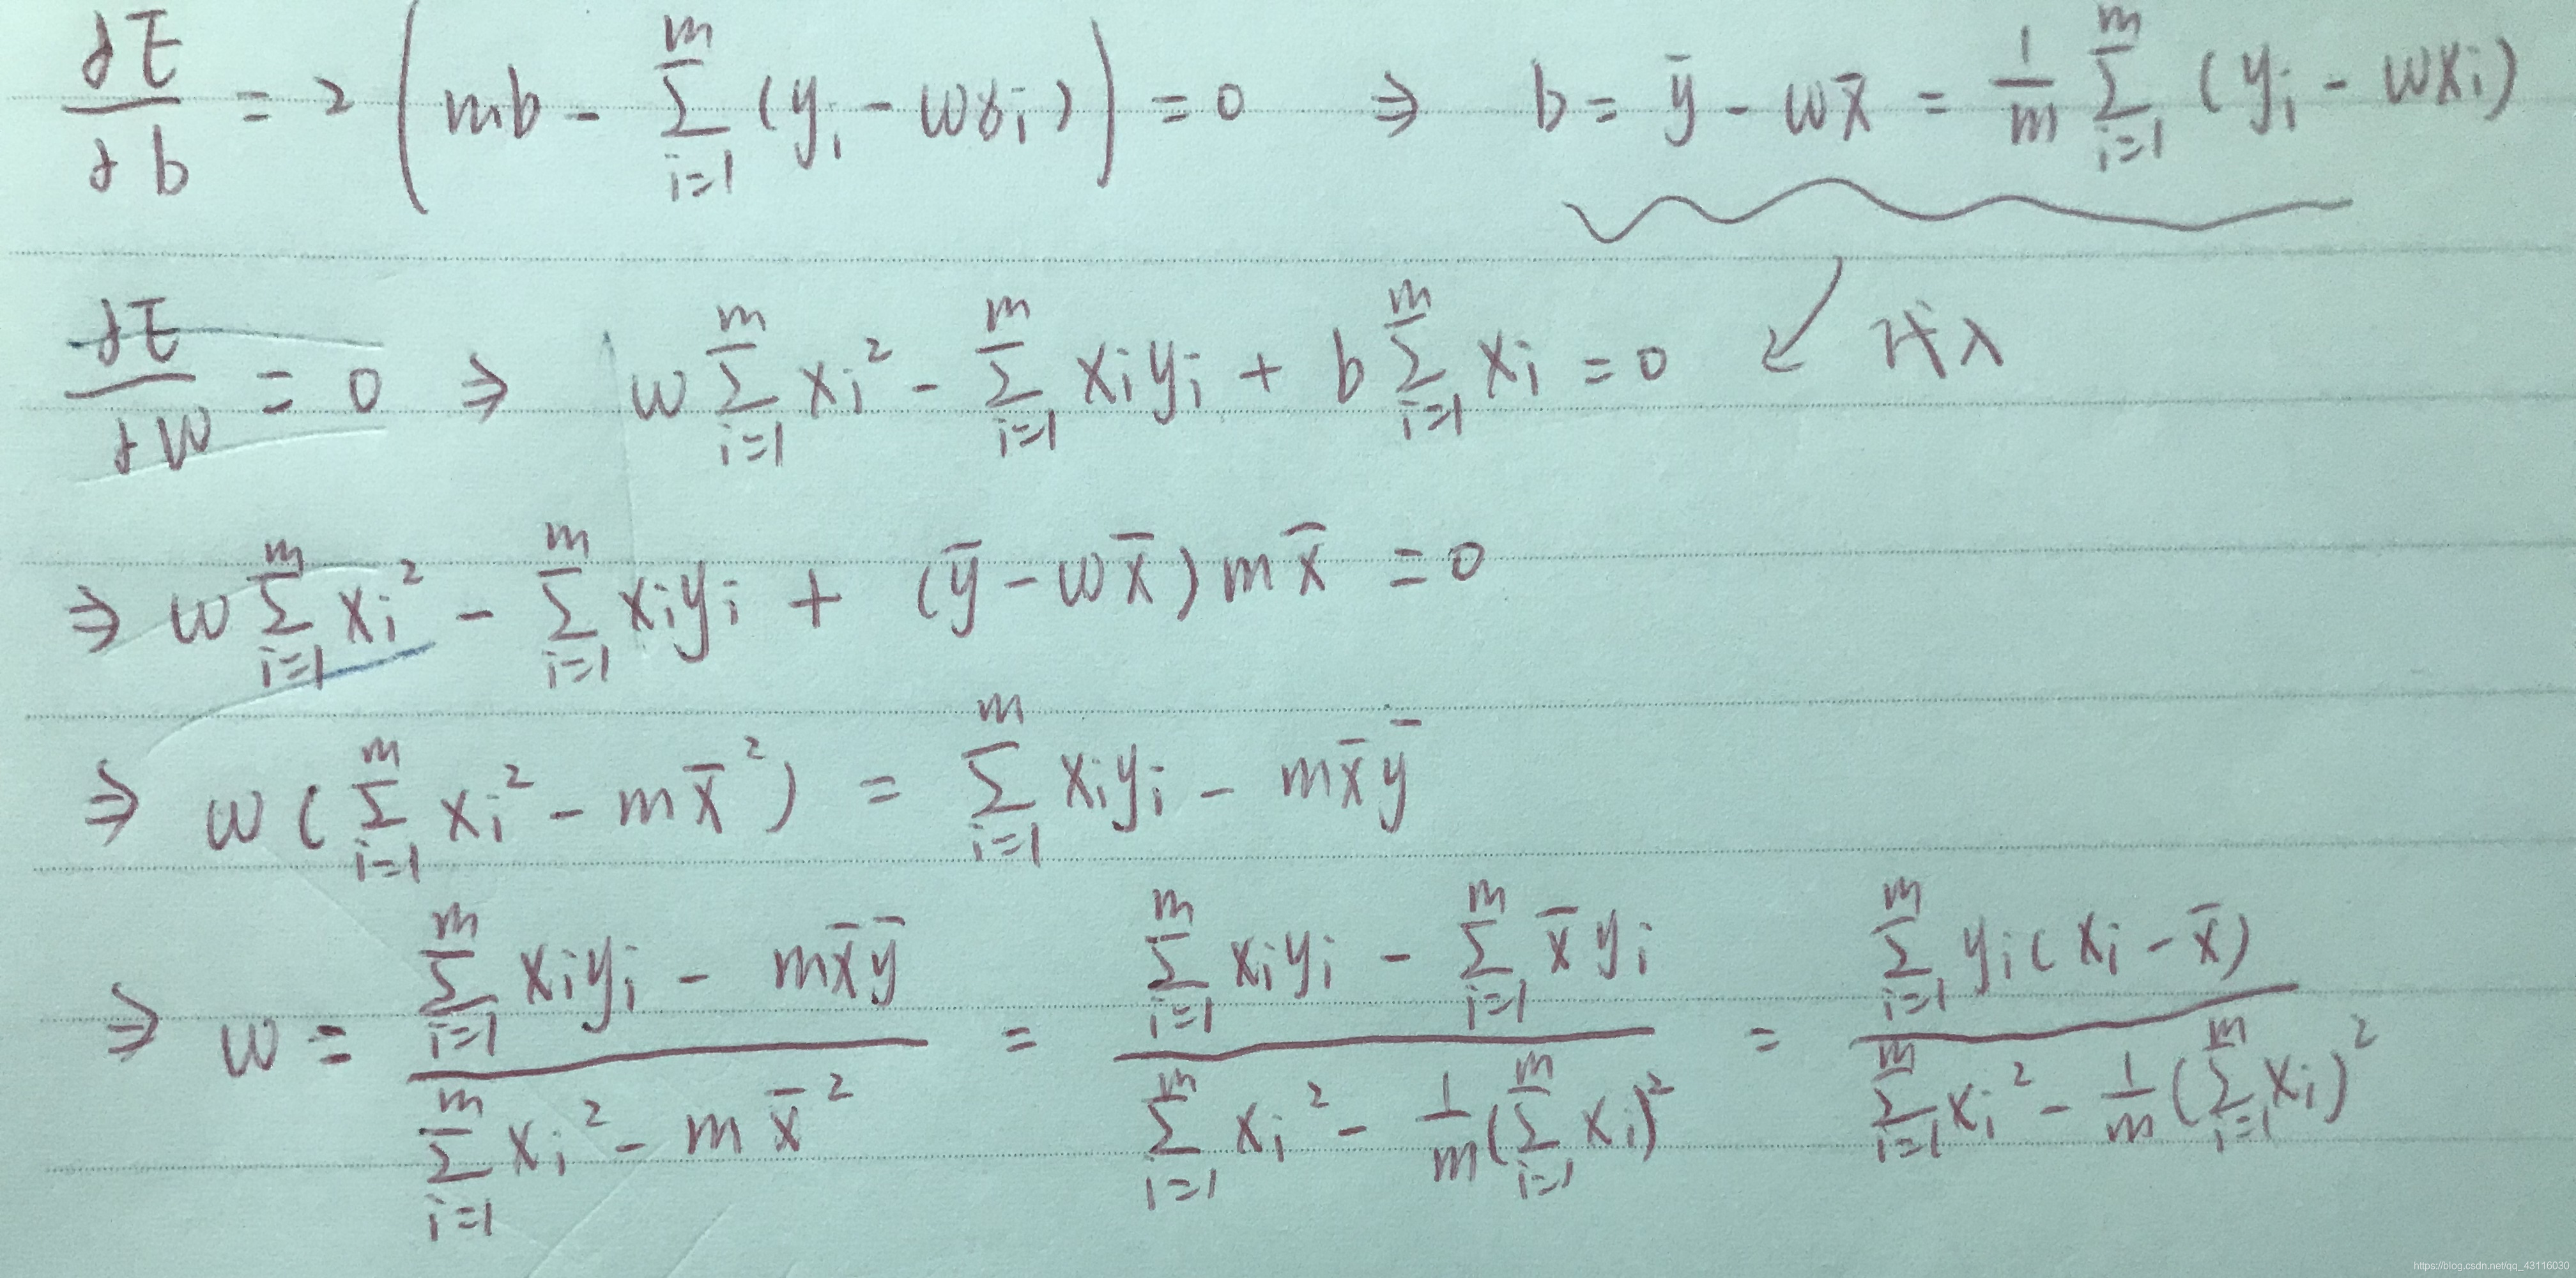 ∂E/∂b = 2 ( mb - ∑_{i=1}^{m} (y_i - wx_i) ) = 0 ⇒ b = ȳ - wx̄ = 1/m ∑_{i=1}^{m} (y_i - wx_i)
∂E/∂w = 0 ⇒ w ∑_{i=1}^{m} x_i² - ∑_{i=1}^{m} x_i y_i + b ∑_{i=1}^{m} x_i = 0 ↙ 代入
⇒ w ∑_{i=1}^{m} x_i² - ∑_{i=1}^{m} x_i y_i + (ȳ - wx̄) mx̄ = 0
⇒ w ( ∑_{i=1}^{m} x_i² - mx̄² ) = ∑_{i=1}^{m} x_i y_i - mx̄ȳ
⇒ w = (∑_{i=1}^{m} x_i y_i - mx̄ȳ) / (∑_{i=1}^{m} x_i² - mx̄²) = (∑_{i=1}^{m} x_i y_i - ∑_{i=1}^{m} x̄ y_i) / (∑_{i=1}^{m} x_i² - 1/m (∑_{i=1}^{m} x_i)²) = (∑_{i=1}^{m} y_i (x_i - x̄)) / (∑_{i=1}^{m} x_i² - 1/m (∑_{i=1}^{m} x_i)²)
https://blog.csdn.net/qq_43116030